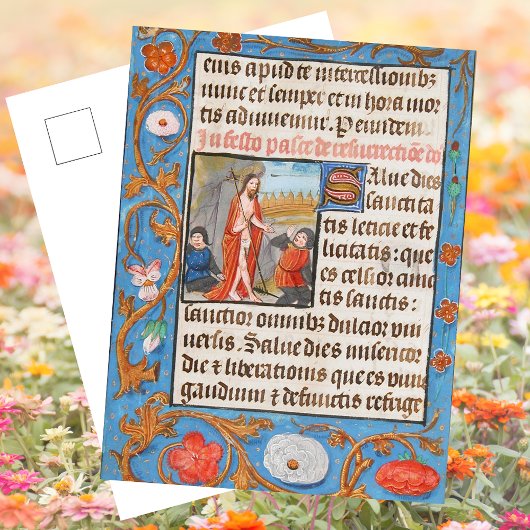 eius apud te intercessionibz
nunc et semper et in hora mor
tis adiuvemur. Per eundem
In festo pasce de resurrectiõe dñ
Salue dies
sanctita
tis leticie et fe
licitatis: que
es celsior anic
tis sanctis:
sanctior omnibz dulcior vni
uersis. Salue dies misericor
die & liberationis que es viuis
gaudium & defunctis refrige